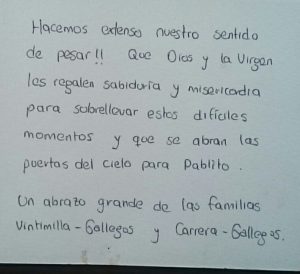 Hacemos extenso nuestro sentido
de pesar!! Que Dios y la Virgen
les regalen sabiduría y misericordia
para sobrellevar estos difíciles
momentos y que se abran las
puertas del cielo para Pablito.
Un abrazo grande de las familias
Vintimilla - Gallegos y Carrera - Gallegos.